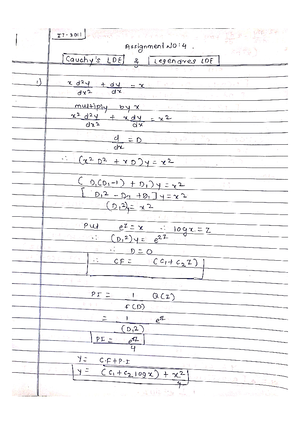 Assignment No: 4
Cauchy's LDE & Legendres LDE
1) x d²y/dx² + dy/dx = x
multiply by x
x² d²y/dx² + x dy/dx = x²
d/dx = D
∴ (x² D² + x D) y = x²
( D₁(D₁-1) + D₁) y = x²
[ D₁² - D₁ + D₁ ] y = x²
(D₁²) = x²
Put e^z = x ∴ log x = z
∴ (D₁²) y = e^2z
∴ D = 0
∴ CF = (C₁ + C₂ z)
PI = 1/f(D) Q(z)
= 1/(D₁2) e^2z
PI = e^2z/4
y = C.F + P.I
y = (C₁ + C₂ log x) + x²/4